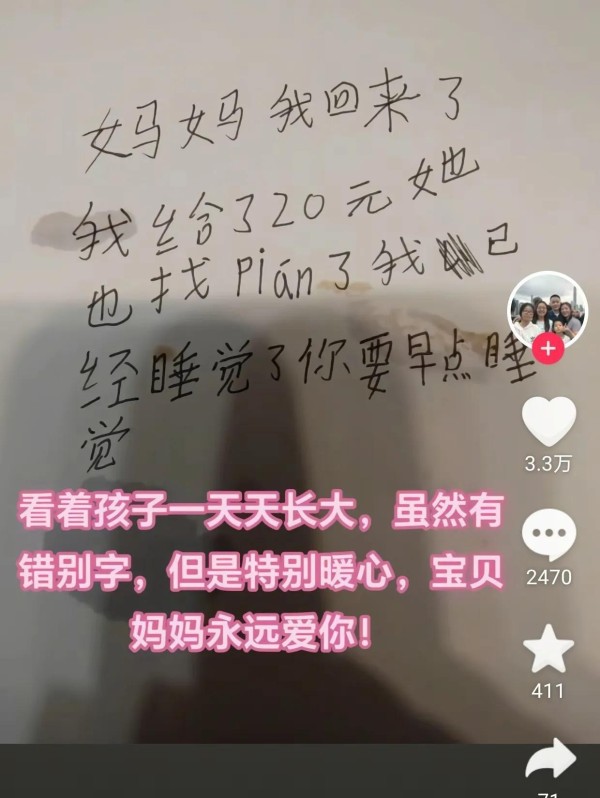 妈妈我回来了
我给了20元她
也找pián了我 已
经睡觉了你要早点睡
觉
看着孩子一天天长大，虽然有
错别字，但是特别暖心，宝贝
妈妈永远爱你！
3.3万
2470
411